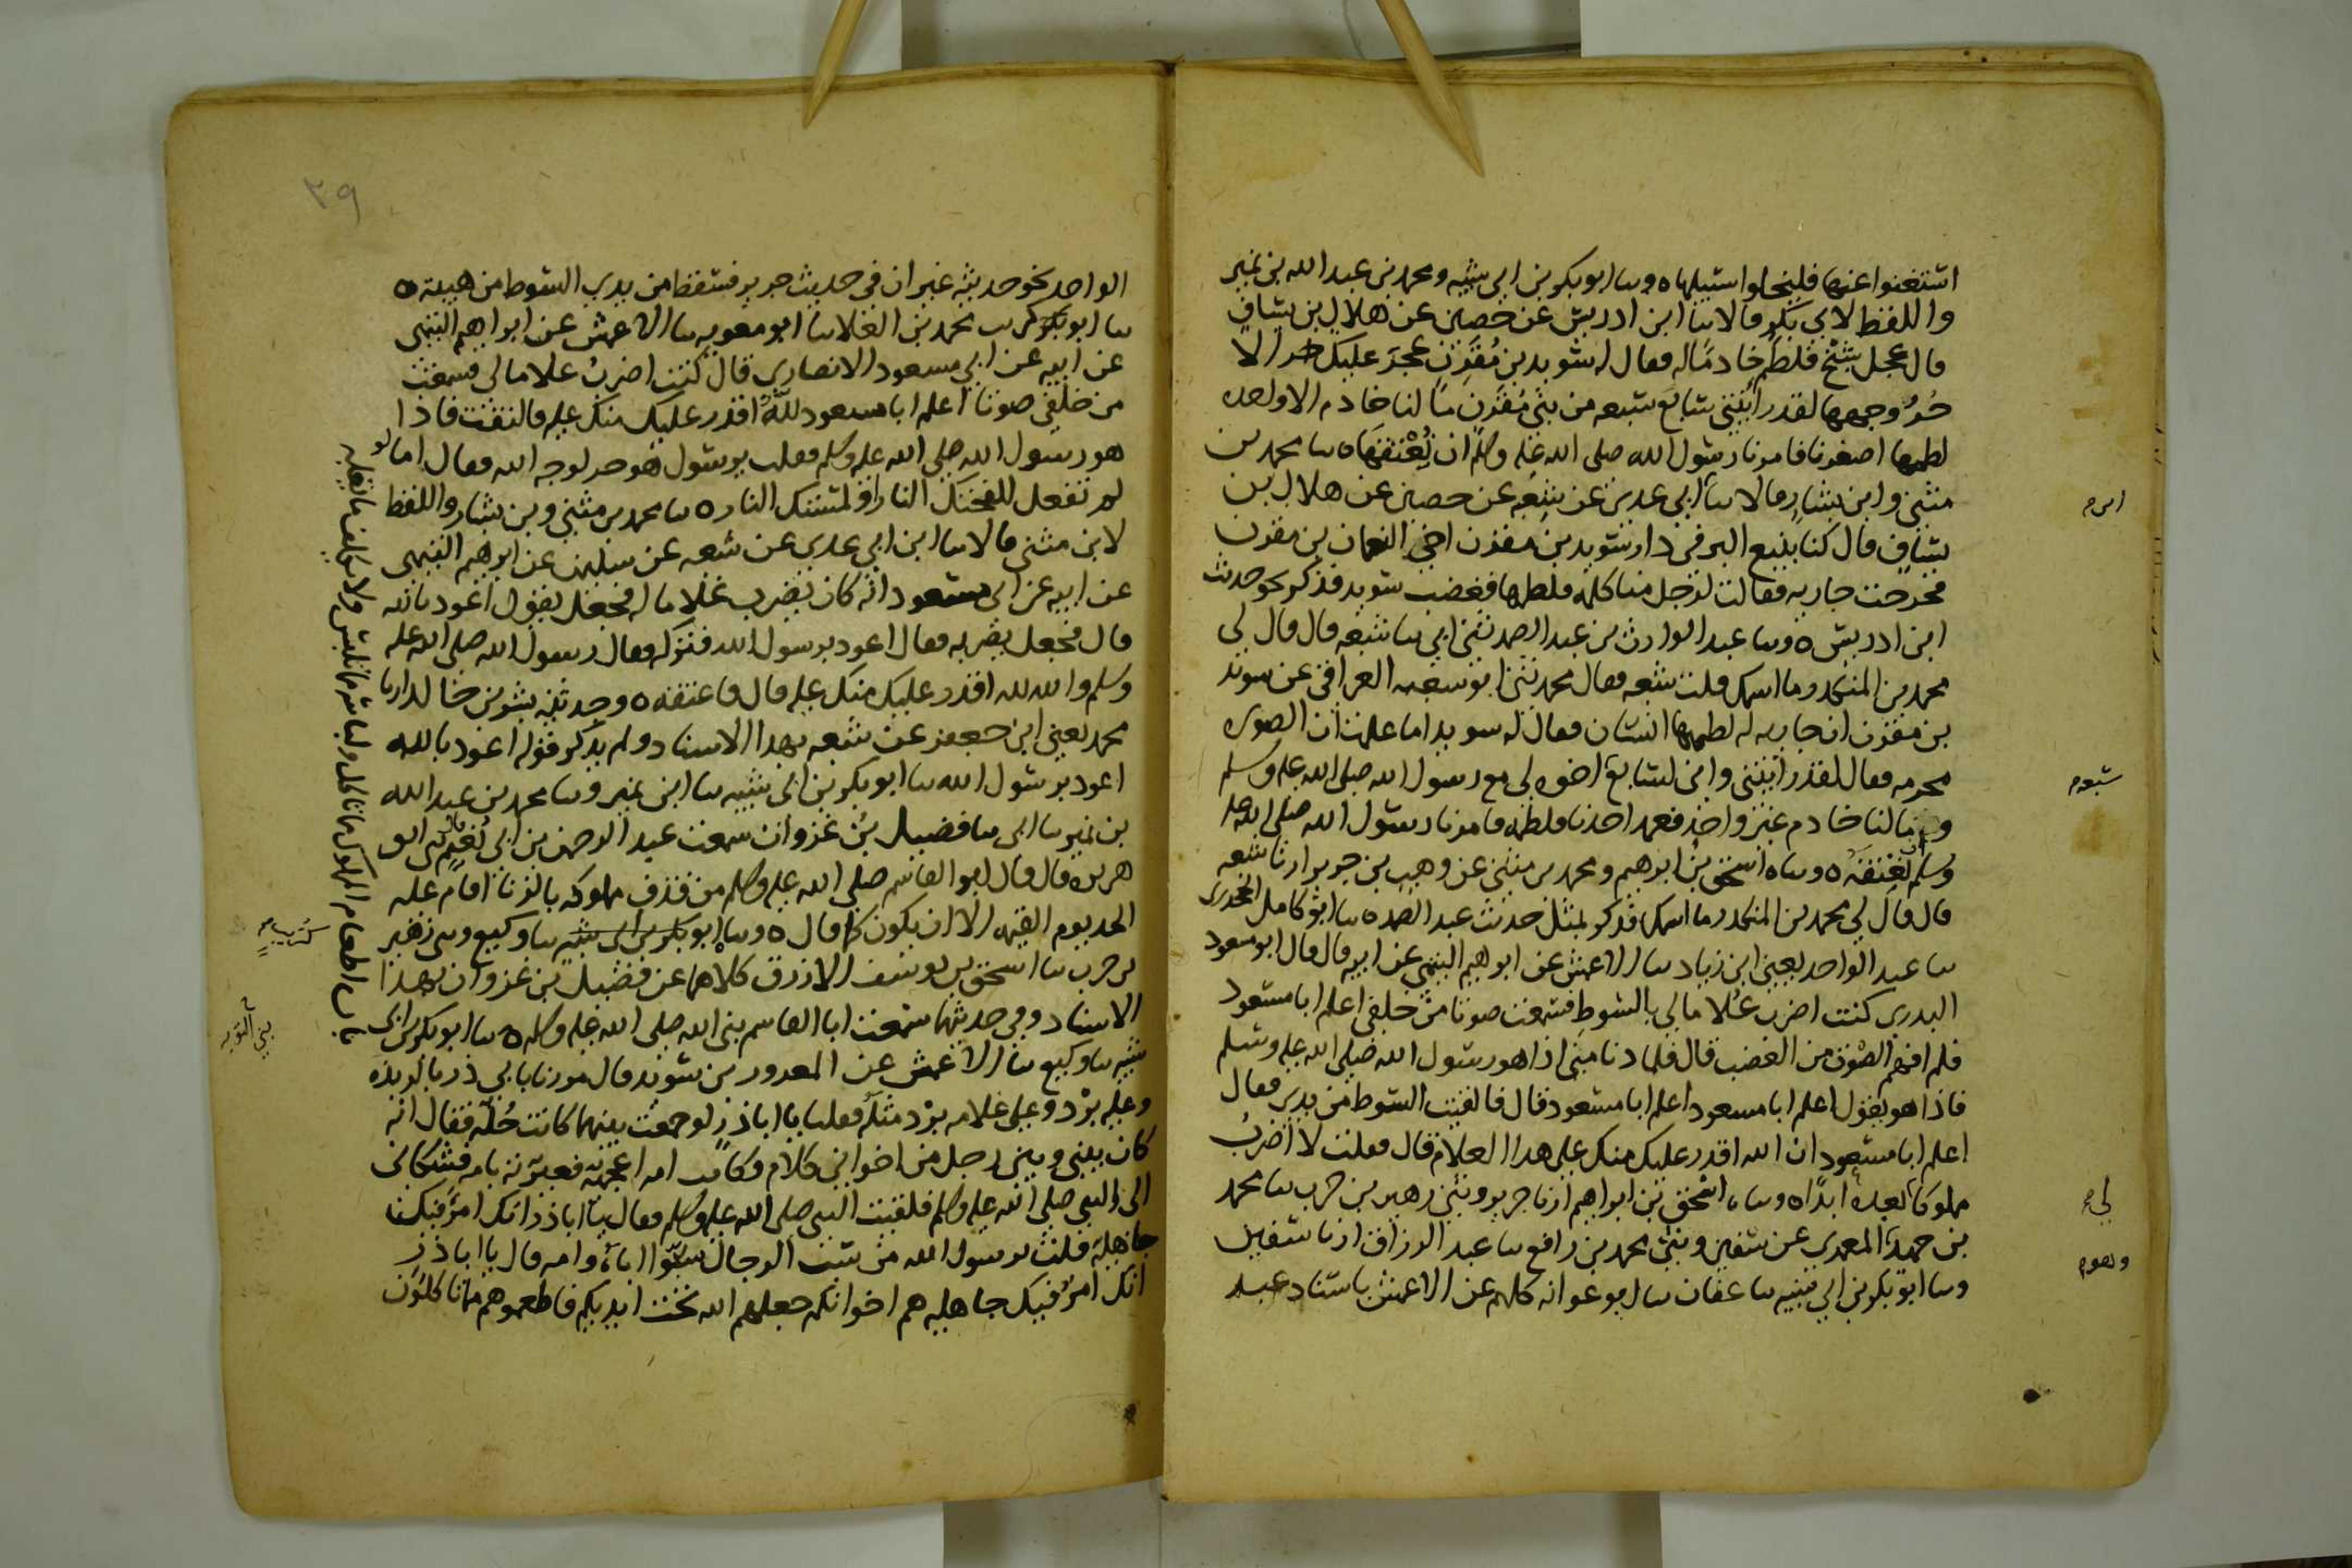 استغنوا عنها فليخلوا سبيلها ٥ وسا ابو بكر بن ابي شيبه ومحمد بن عبد الله بن نمير
واللفظ لابي بكر قالا سا ابن ادريس عن حصين عن هلال بن يساف
قال عجل شيخ فلطم خادما له فقال له سويد بن مقرن عجز عليك الا
حر وجهها لقد رايتني سابع سبعه من بني مقرن ما لنا خادم الا واحده
لطمها اصغرنا فامرنا رسول الله صلى الله عليه وسلم ان نعتقها ٥ سا محمد بن
مثنى وابن بشار قالا سا ابن ابي عدي عن شعبه عن حصين عن هلال بن
يساف قال كنا نبيع البز في دار سويد بن مقرن اخي النعمان بن مقرن
فخرجت جاريه فقالت لرجل منا كلمه فلطمها فغضب سويد فذكر نحو حديث
ابن ادريس ٥ وسا عبد الوارث بن عبد الصمد ثنى ابي سا شعبه قال قال لي
محمد بن المنكدر ما اسمك قلت شعبه فقال محمد ثنى ابو شعبه العراقي عن سويد
بن مقرن ان جاريه له لطمها انسان فقال له سويد اما علمت ان الصوره
محرمه فقال لقد رايتني واني لسابع اخوه لي مع رسول الله صلى الله عليه وسلم
وما لنا خادم غير واحد فعمد احدنا فلطمه فامرنا رسول الله صلى الله عليه
وسلم ان نعتقه ٥ وسا ه اسحق بن ابرهيم ومحمد بن مثنى عن وهب بن جرير ارنا شعبه
قال قال لي محمد بن المنكدر ما اسمك فذكر بمثل حديث عبد الصمد ٥ سا ابو كامل الجحدري
سا عبد الواحد يعني ابن زياد سا الاعمش عن ابراهيم التيمي عن ابيه قال قال ابو مسعود
البدري كنت اضرب غلاما لي بالسوط فسمعت صوتا من خلفي اعلم ابا مسعود
فلم افهم الصوت من الغضب قال فلما دنا مني اذا هو رسول الله صلى الله عليه وسلم
فاذا هو يقول اعلم ابا مسعود اعلم ابا مسعود قال فالقيت السوط من يدي فقال
اعلم ابا مسعود ان الله اقدر عليك منك على هذا الغلام قال فقلت لا اضرب
مملوكا بعده ابدا ٥ وسا ه اسحق بن ابراهيم ارنا جرير وثنى زهير بن حرب سا محمد
بن حميد المعمري عن سفين وثنى محمد بن رافع سا عبد الرزاق ارنا سفين
وسا ابو بكر بن ابي شيبه سا عفان سا ابو عوانه كلهم عن الاعمش باسناد عبد
شعبه
لي
وهو
٣٩
الواحد نحو حديثه غير ان في حديث جرير فسقط من يدي السوط من هيبته ٥
سا ابو كريب محمد بن العلا سا ابو معويه سا الاعمش عن ابراهيم التيمي
عن ابيه عن ابي مسعود الانصاري قال كنت اضرب غلاما لي فسمعت
من خلفي صوتا اعلم ابا مسعود لله اقدر عليك منك عليه فالتفت فاذا
هو رسول الله صلى الله عليه وسلم فقلت يرسول هو حر لوجه الله فقال اما لو
لم تفعل للفحتك النار او لمستك النار ٥ سا محمد بن مثنى وبن بشار واللفظ
لابن مثنى قالا سا ابن ابي عدي عن شعبه عن سليمن عن ابرهيم التيمي
عن ابيه عن ابي مسعود انه كان يضرب غلاما له فجعل يقول اعوذ بالله
قال فجعل يضربه فقال اعوذ برسول الله فتركه فقال رسول الله صلى الله عليه
وسلم والله لله اقدر عليك منك عليه قال فاعتقه ٥ وحدثنيه بشر بن خالد ارنا
محمد يعني ابن جعفر عن شعبه بهذا الاسناد ولم يذكر قوله اعوذ بالله
اعوذ برسول الله سا ابو بكر بن ابي شيبه سا ابن نمير وسا محمد بن عبد الله
بن نمير سا ابي سا فضيل بن غزوان سمعت عبد الرحمن بن ابي نعيم ثنى ابو
هريره قال قال ابو القاسم صلى الله عليه وسلم من قذف مملوكه بالزنا اقام عليه
الحد يوم القيمه الا ان يكون كما قال ٥ وسا ابو بكر بن ابي شيبه سا وكيع وثنى زهير
بن حرب سا اسحق بن يوسف الازرق كلاهما عن فضيل بن غزوان بهذا
الاسناد وفي حديثهما سمعت ابا القاسم نبي الله صلى الله عليه وسلم ٥ سا ابو بكر بن ابي
شيبه سا وكيع سا الاعمش عن المعرور بن سويد قال مررنا بابي ذر بالربذه
وعليه برد وعلى غلامه برد مثله فقلنا يا ابا ذر لو جمعت بينهما كانت حلة فقال انه
كان بيني وبين رجل من اخواني كلام وكانت امه اعجميه فعيرته بامه فشكاني
الى النبي صلى الله عليه وسلم فلقيت النبي صلى الله عليه وسلم فقال يا ابا ذر انك امرؤ فيك
جاهلية قلت يرسول الله من سب الرجال سبوا اباه وامه قال يا ابا ذر
انك امرؤ فيك جاهليه هم اخوانكم جعلهم الله تحت ايديكم فاطعموهم مما تاكلون
باب اطعام المملوك مما تاكل ولباسه مما تلبس ولا يكلف ما يغلبه
كريب
نبي التوبه